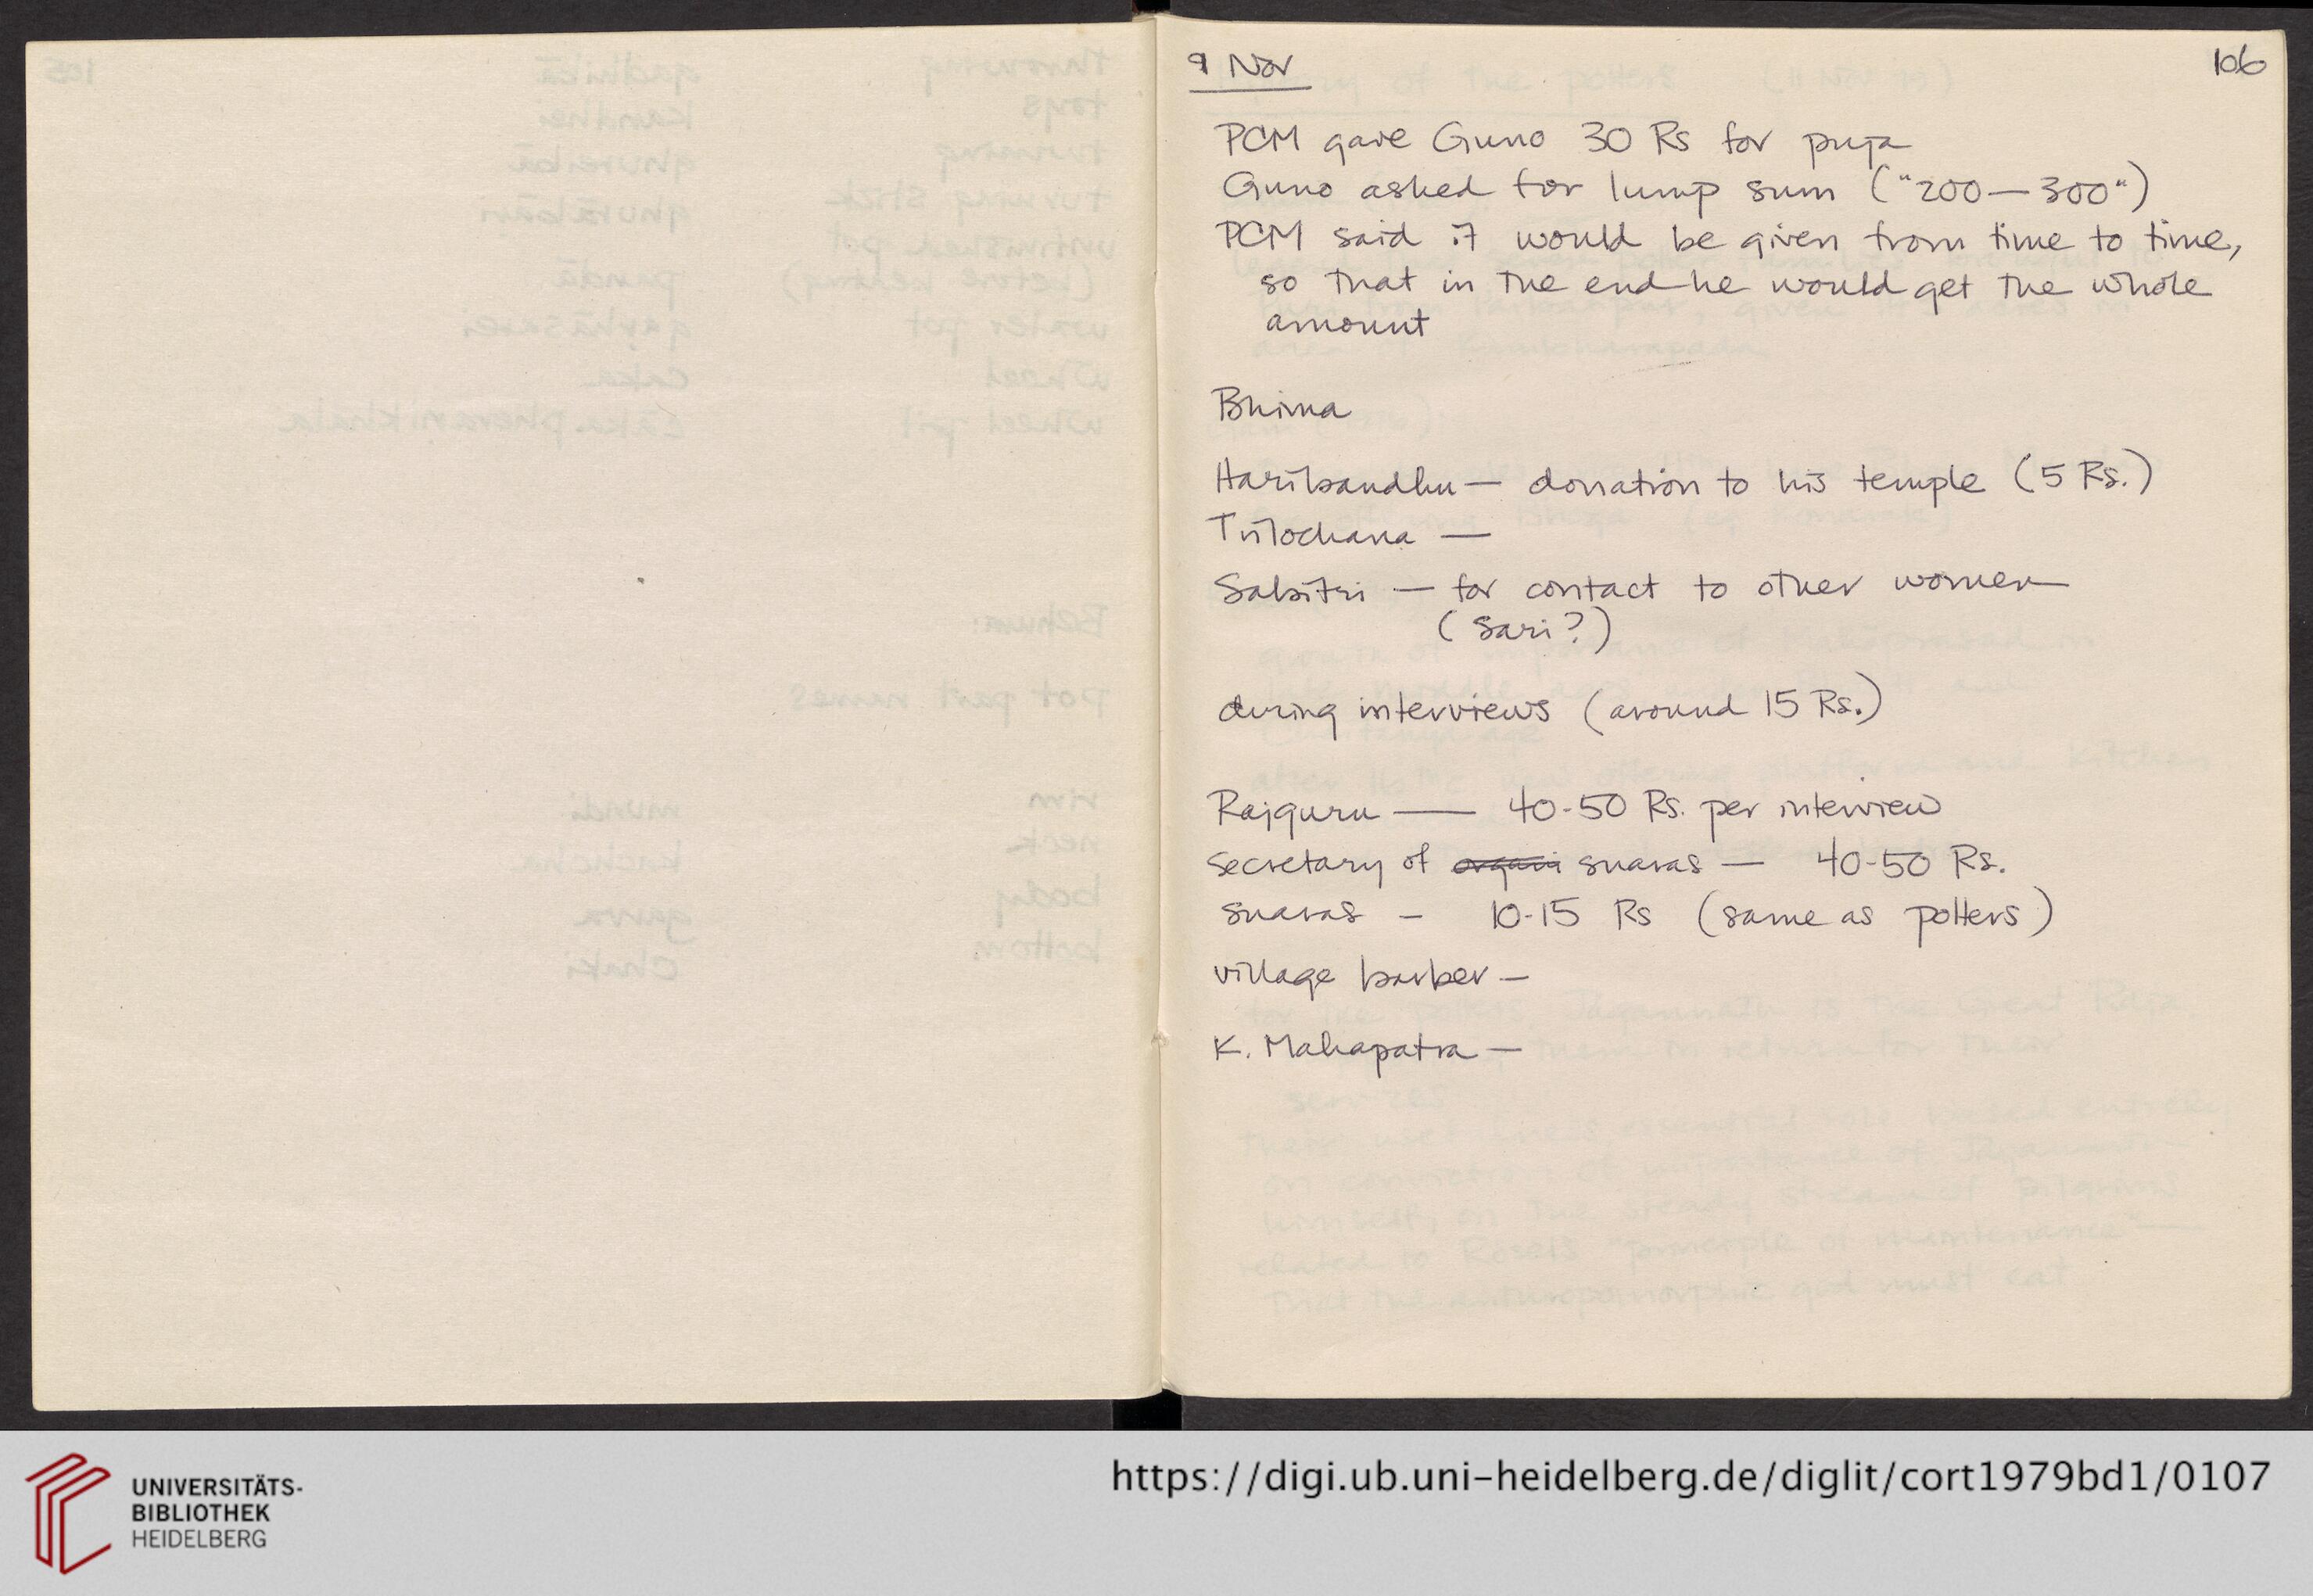 9 Nov
106
PCM gave Guno 30 Rs for puja
Guno asked for lump sum ("200—300")
PCM said it would be given from time to time,
so that in the end he would get the whole
amount
Bhima
Haribandhu — donation to his temple (5 Rs.)
Trilochana —
Sabitri — for contact to other women
(Sari?)
during interviews (around 15 Rs.)
Rajguru — 40-50 Rs. per interview
secretary of organi suaras — 40-50 Rs.
suaras - 10-15 Rs (same as potters)
village barber —
K. Mahapatra —
UNIVERSITÄTS-
BIBLIOTHEK
HEIDELBERG
https://digi.ub.uni-heidelberg.de/diglit/cort1979bd1/0107